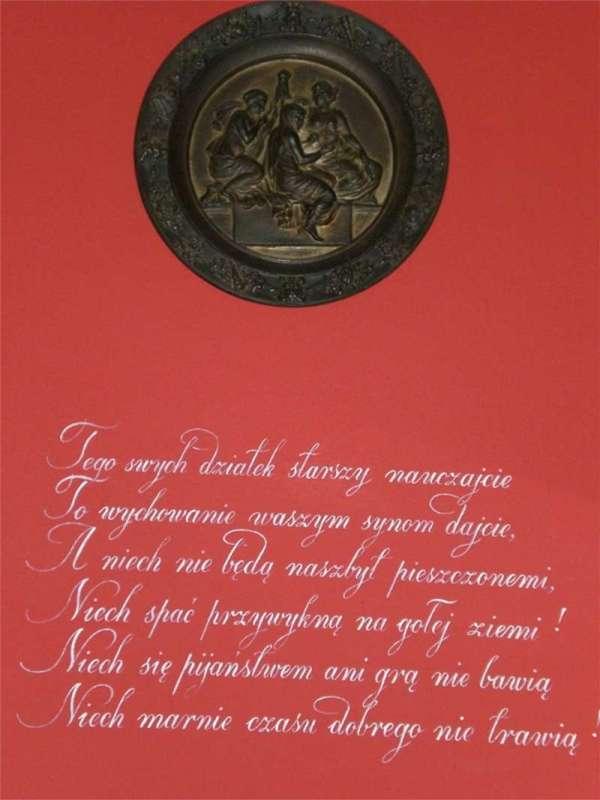 Tego swych działek starszy nauczajcie
To wychowanie waszym synom dajcie,
A niech nie będą naszbył pieszczonemi,
Niech spać przywykną na gołej ziemi!
Niech się pijaństwem ani grą nie bawią
Niech marnie czasu dobrego nie trawią!